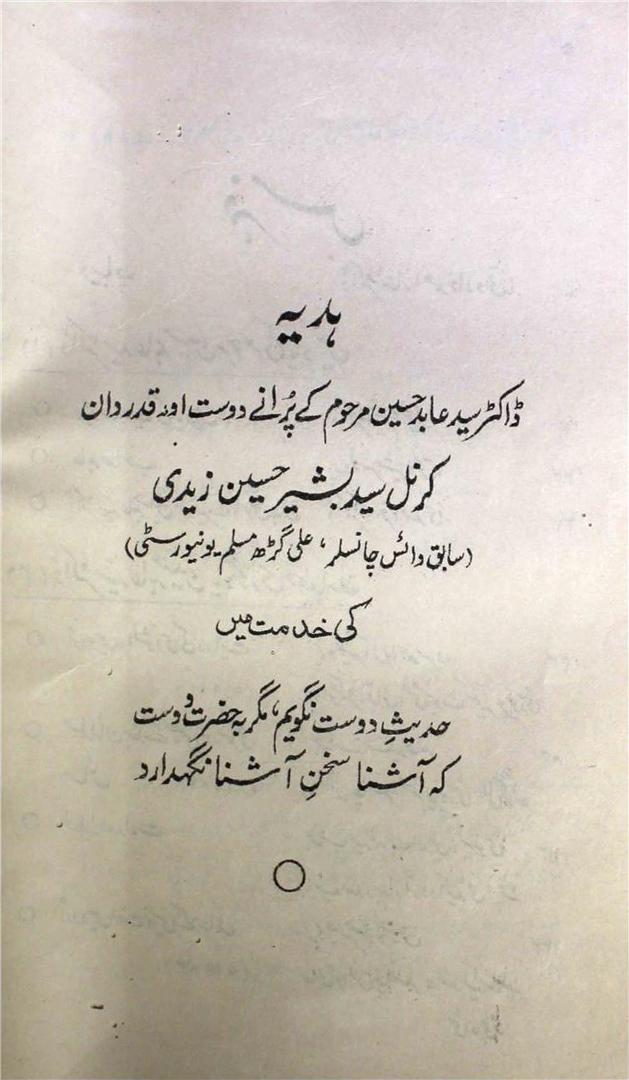 ہدیہ
ڈاکٹر سید عابد حسین مرحوم کے پُرانے دوست اور قدردان
کرنل سید بشیر حسین زیدی
(سابق وائس چانسلر، علی گڑھ مسلم یونیورسٹی)
کی خدمت میں
حدیثِ دوست نگویم، مگر بہ حضرت دوست
کہ آشنا سخنِ آشنا نگہدارد